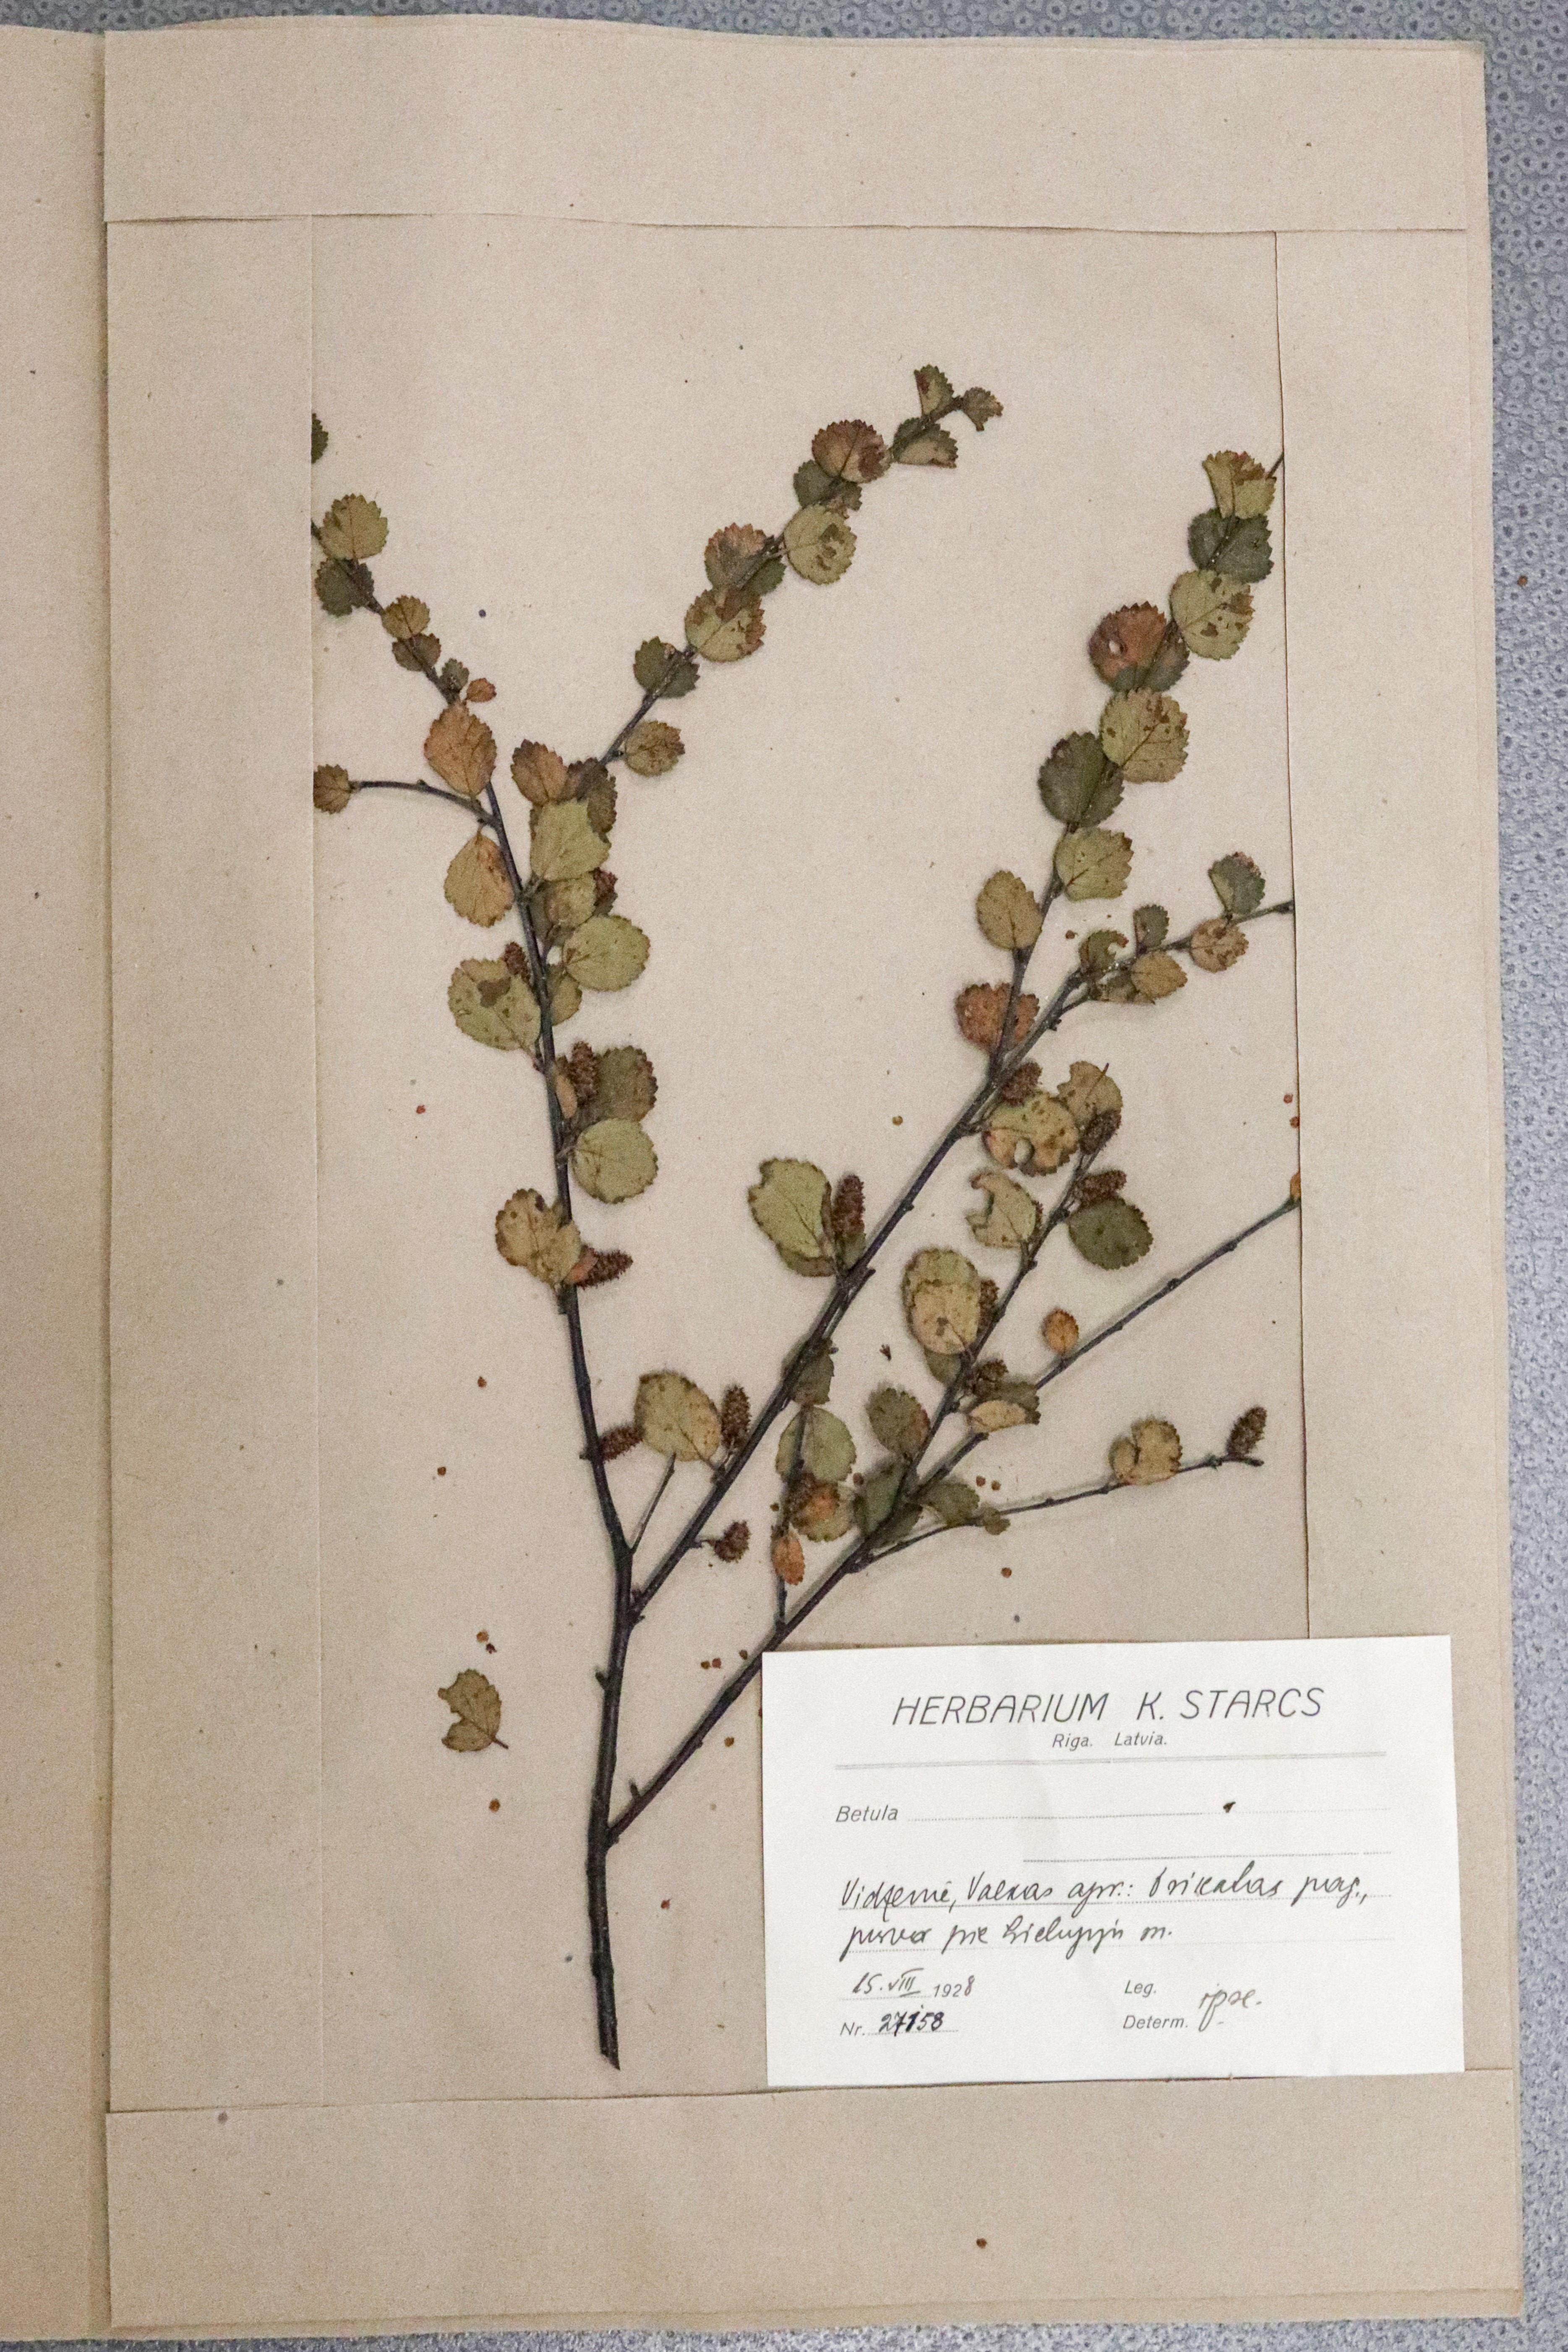 HERBARIUM K. STARCS
Riga. Latvia.
Betula
Vidzemē, Valkas apr.: Trikatas pag.,
purvā pie Lielupju m.
15. VIII 1928
Leg. ipse.
Nr. 27158
Determ.